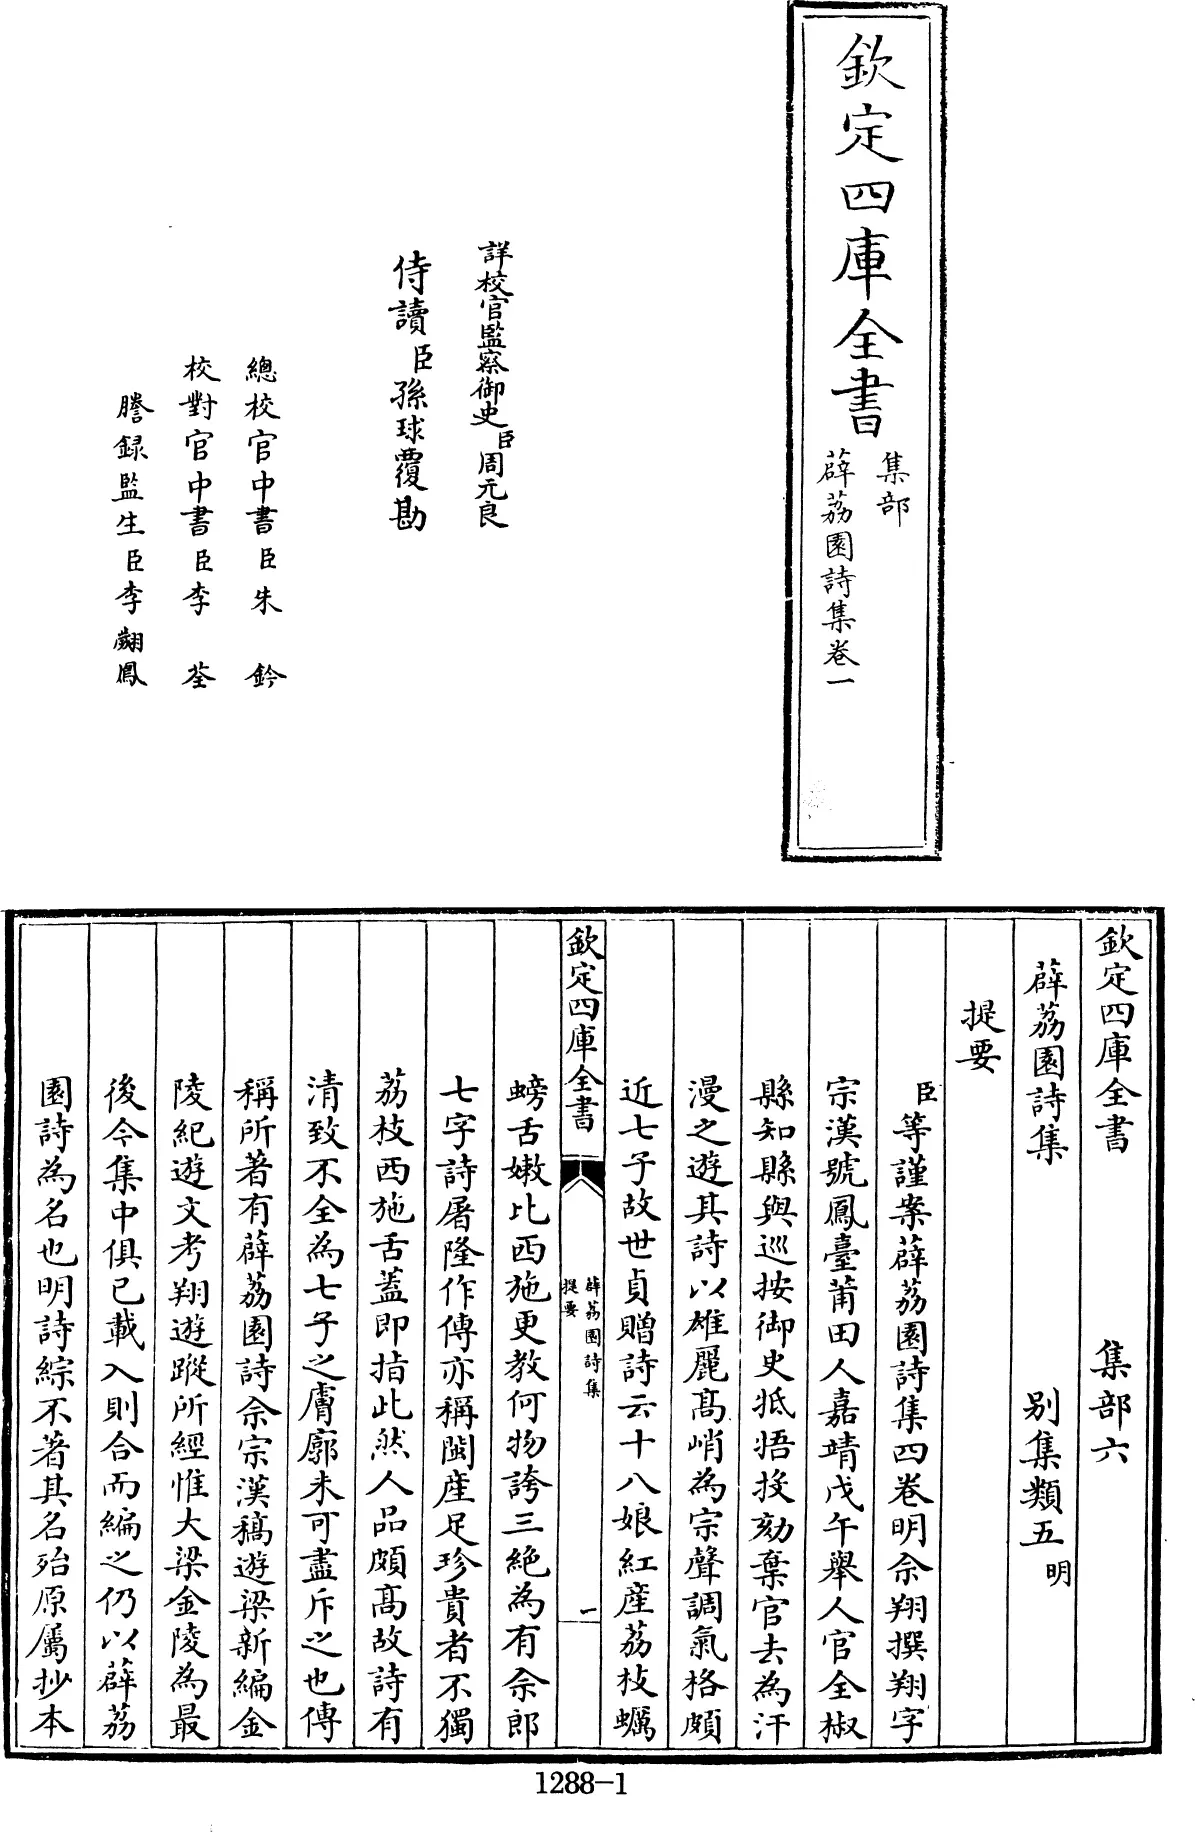 欽定四庫全書
集部
薜荔園詩集卷一
詳校官監察御史臣周元良
侍讀臣孫球覆勘
總校官中書臣朱鈐
校對官中書臣李荃
謄錄監生臣李翽鳳
欽定四庫全書 集部六
薜荔園詩集 别集類五明
提要
臣等謹案薜荔園詩集四卷明佘翔撰翔字
宗漢號鳳臺莆田人嘉靖戊午舉人官全椒
縣知縣與巡按御史抵牾投劾棄官去為汗
漫之遊其詩以雄麗髙峭為宗聲調氣格頗
近七子故世貞贈詩云十八娘紅産荔枝蠣
欽定四庫全書
薜荔園詩集
提要
一
螃舌嫩比西施更教何物誇三絶為有佘郎
七字詩屠隆作傳亦稱閩産足珍貴者不獨
荔枝西施舌蓋即指此然人品頗髙故詩有
清致不全為七子之膚廓未可盡斥之也傳
稱所著有薜荔園詩佘宗漢稿遊梁新編金
陵紀遊文考翔遊蹤所經惟大梁金陵為最
後今集中俱已載入則合而編之仍以薜荔
園詩為名也明詩綜不著其名殆原屬抄本
1288-1